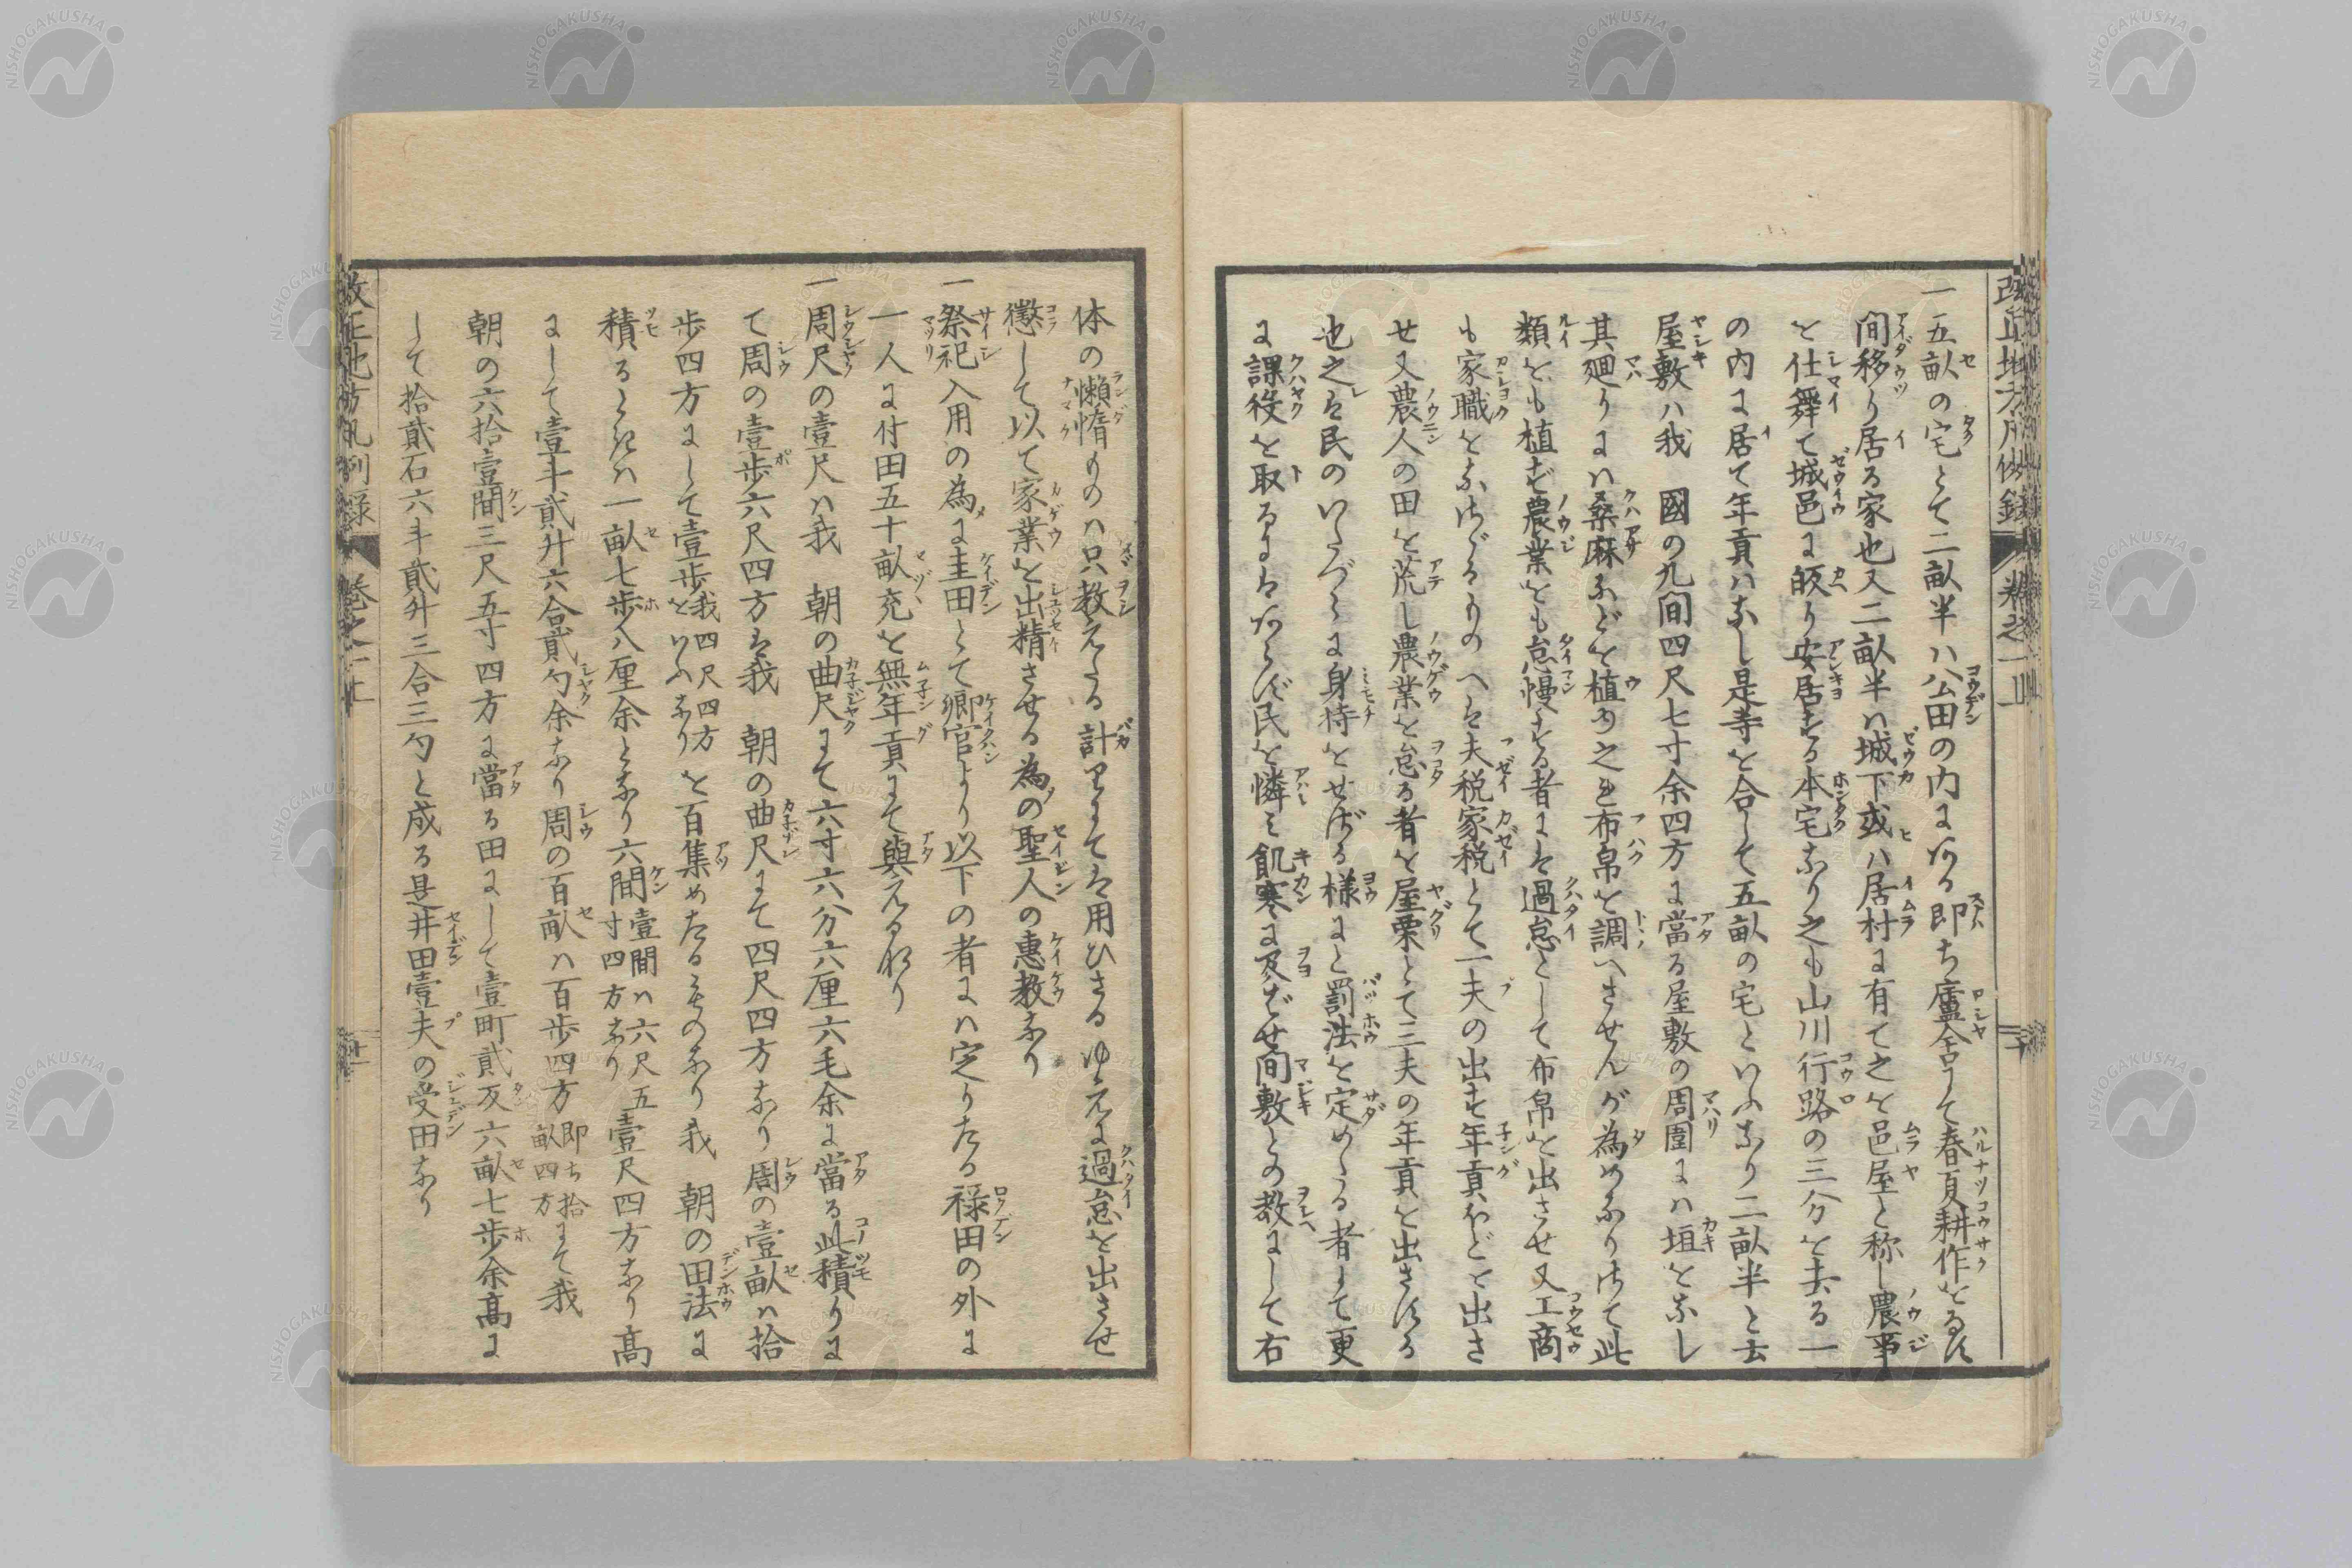 一五畝の宅とて二畝半ハ公田の内にある即ち廬舎にて春夏耕作をなす
間移り居る家也又二畝半ハ城下或ハ居村に有て之を邑屋と称し農事
を仕舞て城邑に皈り安居する本宅なり之も山川行路の三分を去る一
の内に居て年貢ハなし是等を合して五畝の宅といふなり二畝半と去
屋敷ハ我 國の九間四尺七寸余四方に當る屋敷の周圍にハ垣をなし
其廻りにハ桑麻などを植内之を布帛を調へさせんが為めなりけて此
類をも植ず農業をも怠慢する者にハ過怠として布帛を出させ又工商
も家職をなさゞるものへハ夫税家税とて一夫の出す年貢ほどを出さ
せ又農人の田を荒し農業を怠る者を屋粟とて三夫の年貢を出さする
也之ハ民のいたづらに身持をせざる様にと罰法を定めたる者にて更
に課役を取るにはあらず民を憐み飢寒に及ばせ間敷との教にして右
体の懶惰ものハ只教えたる計りにてハ用ひざるゆえに過怠を出させ
懲して以て家業を出精させる為の聖人の惠教なり
一祭祀入用の為に圭田とて卿官より以下の者にハ定りたる禄田の外に
一人に付田五十畝充を無年貢にて與える也
一周尺の壹尺ハ我 朝の曲尺にて六寸六分六厘六毛余に當る此積りに
て周の壹歩六尺四方ハ我 朝の曲尺にて四尺四方なり周の壹畝ハ拾
歩四方にして壹歩を我四尺四方といふなりを百集めたるものなり我 朝の田法に
積ると𛂞一畝七歩八厘余となり六間壹間ハ六尺五寸四方なり壹尺四方なり高
にして壹斗貳升六合貳勺余なり周の百畝ハ百歩四方即ち拾畝四方にて我
朝の六拾壹間三尺五寸四方に當る田にして壹町貳反六畝七歩余高に
して拾貳石六斗貳升三合三勺と成る是井田壹夫の受田なり